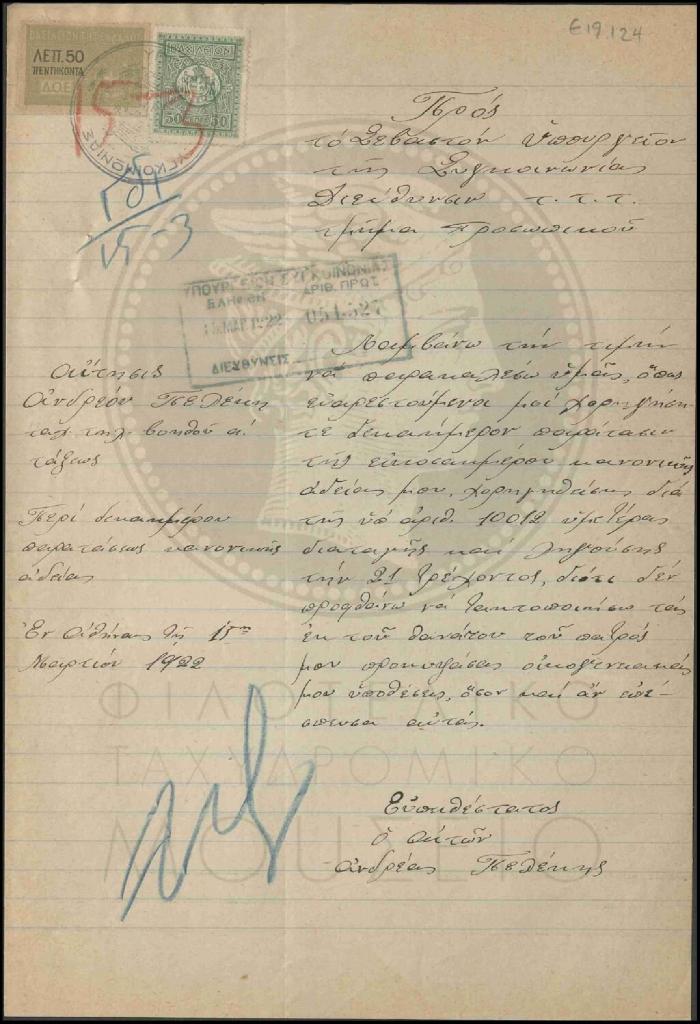 Ε19.124
ΛΕΠ. 50
ΠΕΝΤΗΚΟΝΤΑ
ΒΑΣΙΛΕΙΟΝ
50 50
ΣΥΓΚΟΙΝΩΝΙΑΣ
15-3
Πρός
τό Σεβαστόν Υπουργείον
της Συγκοινωνίας
Διεύθυνσιν τ.τ.τ.
τμήμα προσωπικού
ΥΠΟΥΡΓΕΙΟΝ ΣΥΓΚΟΙΝΩΝΙΑΣ
ΕΛΗΦΘΗ ΑΡΙΘ. ΠΡΩΤ
ΜΑΡ. 1922
ΔΙΕΥΘΥΝΣΙΣ
Αίτησις
Ανδρέου Πελέκη
ταχ τηλ βοηθού α'
τάξεως
Περί δεκαημέρου
παρατάσεως κανονικής
αδείας
Εν Αθήναις τη 15
Μαρτίου 1922
Λαμβάνω την τιμήν
να παρακαλέσω υμάς, όπως
ευαρεστούμενοι μοί χορηγήση
τε δεκαήμερον παράτασιν
της εικοσαημέρου κανονικής
αδείας μου, χορηγηθείσης διά
της υπ' αριθ. 10012 υμετέρας
διαταγής και ληγούσης
την 21 τρέχοντος, διότι δεν
προφθάνω να τακτοποιήσω τας
εκ του θανάτου του πατρός
μου προκυψάσας οικογενειακάς
μου υποθέσεις, όσον και αν επέ-
σπευσα αυτάς.
Ευπειθέστατος
ο αιτών
Ανδρέας Πελέκης
ΦΙΛΟΤΕΛΙΚΟ
ΤΑΧΥΔΡΟΜΙΚΟ
ΜΟΥΣΕΙΟ